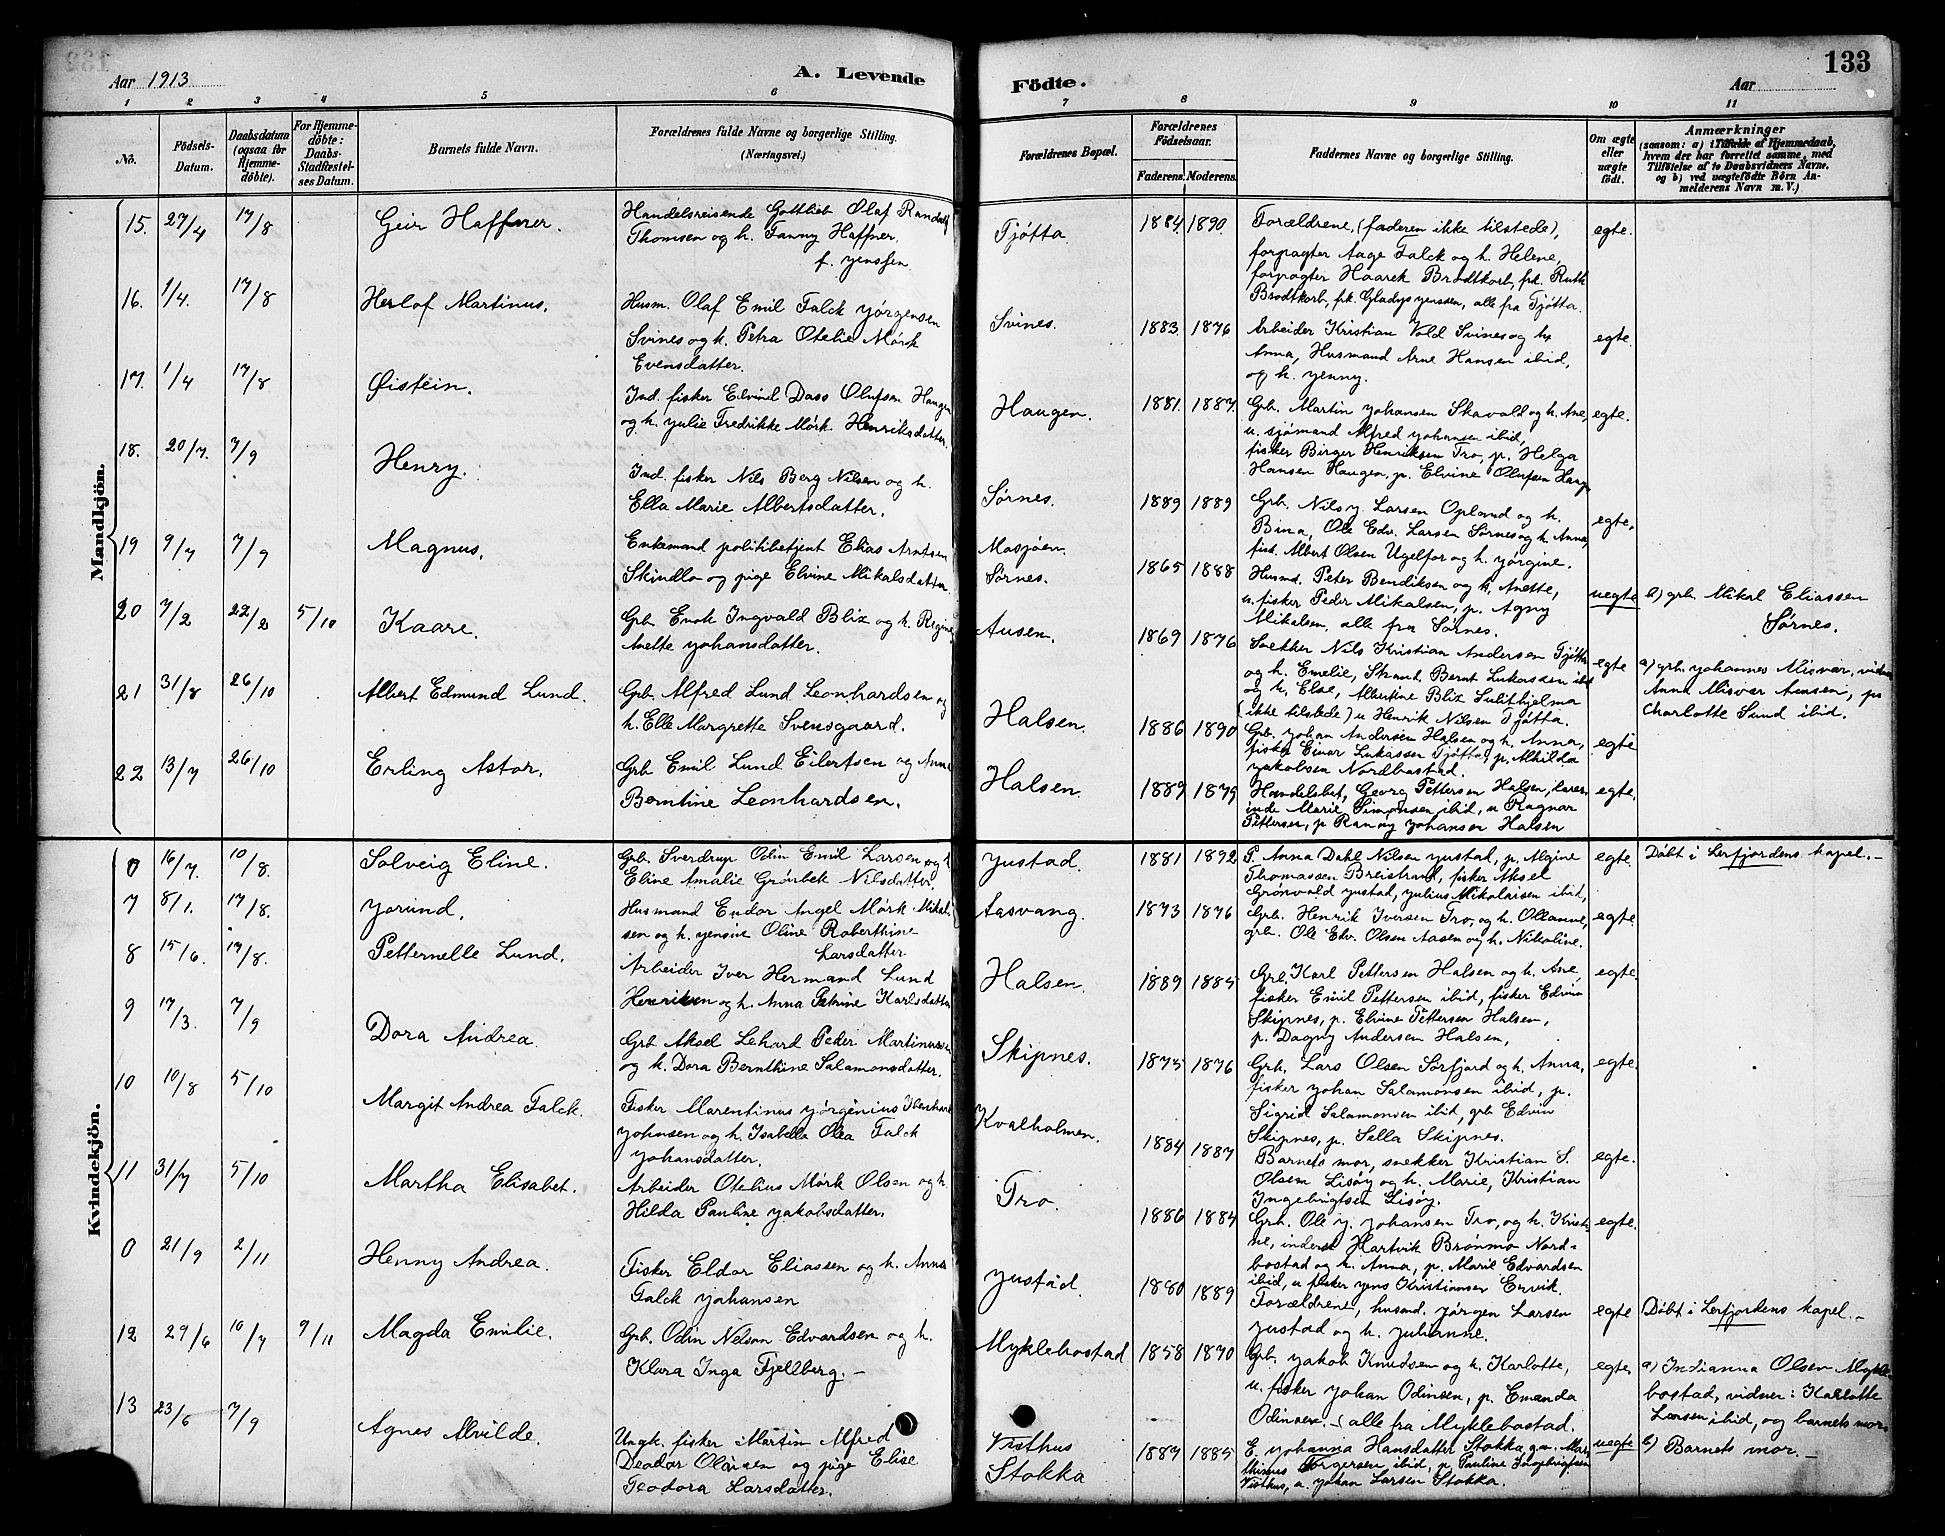 Aar 1913.
A. Levende
Födte.
Aar
133
1 2 3 4 5 6 7 8 9 10 11
No.
Födsels-Datum.
Daabsdatum (ogsaa for Hjemmedöbte).
For Hjemmedöbte: Daabs-Stadfæstelses Datum.
Barnets fulde Navn.
Forældrenes fulde Navne og borgerlige Stilling. (Næringsvei.)
Forældrenes Bopæl.
Forældrenes Födselsaar.
Faderens. Moderens.
Faddernes Navne og borgerlige Stilling.
Om ægte eller uægte födt.
Anmærkninger
(saasom: a) i Tilfælde af Hjemmedaab, hvem der har forrettet samme, med Tilföielse af to Daabsvidners Navne, og b) ved uægtefödte Börn Anmelderens Navn m. V.)
Mandkjön.
15. 27/4 17/8 Geir Haffner.
Handelsreisende Gottlieb Olaf Randulf
Thomsen og h. Fanny Haffner
f. Jenssen
Tjøtta. 1884 1890.
Forældrene, (faderen ikke tilstede),
forpagter Aage Falck og h. Helene,
forpagter Haarek Brodtkorb, frk. Ruth
Brodtkorb, frk. Gladys Jenssen, alle fra Tjøtta.
egte.
16. 1/4. 17/8 Herlof Martinus.
Husm. Olaf Emil Falck Jørgensen
Svines og h. Petra Otelie Mørk
Evensdatter.
Svines. 1883. 1876
Arbeider Kristian Vold Svines og h.
Anna, Husmand Arne Hansen ibid,
og h. Jenny.
egte.
17. 1/4 17/8 Øistein.
Ind. fisker Eivind Dass Olufsen Haugen
og h. Julie Fredrikke Mørk Henriksdatter.
Haugen. 1881. 1887.
Grb. Martin Johansen Skavold og h. Ane,
u. sjømand Alfred Johansen ibid,
fisker Birger Henriksen Tro, p. Helga
Hansen Haugen, p. Elvine Olufsen
egte.
18. 20/7. 7/9 Henry.
Ind. fisker Nils Berg Nilsen og h.
Ella Marie Albertsdatter.
Sørnes. 1889 1889
Grb. Nils J. Larsen Opland og h.
Bina, Ole Edv. Larsen Sørnes og h. Anna,
fis. Albert Olsen Ugelfor og h. Jørgine.
egte.
19 9/7 7/9 Magnus.
Enkemand politibetjent Elias Arntsen
Skindlo og pige Elvine Mikalsdatter
Mosjøen.
Sørnes. 1865 1888
Husmd. Peter Bendiksen og h. Anette,
u. fisker Peder Mikalsen, p. Agny
Mikalsen, alle fra Sørnes.
uegte b) grb. Mikal Eliassen
Sørnes.
20 7/2 22/2 5/10 Kaare.
Grb. Enok Ingvald Blix og h. Regine
Anette Johansdatter.
Ausen. 1869 1876
Snekker Nils Kristian Andersen Tjøtta
og h. Emelie, Strand. Bernt Lukassen ibid
og h. Else, Albertine Blix Sulithjelma
(ikke tilstede) u. Henrik Nilsen Tjøtta.
egte
a) grb. Johannes Misvær, vidner
Anna Misvær Aussen, p.
Charlotte Lund ibid.
21 31/8 26/10 Albert Edmund Lund.
Grb. Alfred Lund Leonhardsen og
h. Elle Margrette Svensgaard.
Halsen. 1886 1890
Grb. Johan Andersen Halsen og h. Anna,
fisker Einar Lukassen Tjøtta, p. Alhilda
Jakobsen Nordbostad.
egte
22 13/7 26/10 Erling Astor.
Grb. Emil Lund Eilertsen og Anne
Berntine Leonhardsen.
Halsen 1889 1879
Handelsbet. Georg Pettersen Halsen,
Marie Simonsen ibid, u. Ragnar
Pettersen, p. Ranny Johansen Halsen
egte.
Kvindekjön.
0 16/7. 10/8. Solveig Eline.
Grb. Sverdrup Odin Emil Larsen og h.
Eline Amalie Grønbek Nilsdatter.
Justad. 1881 1892
P. Anna Dahl Nilsen Justad, p. Algine
Thomassen Breistrand, fisker Aksel
Grønvold Justad, Julius Mikalaisen ibid,
egte. Døbt i Lerfjordens kapel.-
7 8/1. 17/8. Jorund.
Husmand Eudor Angel Mørk Mikal-
sen og h. Jensine Oline Roberthine
Larsdatter
Aasvang. 1873 1876
Grb. Henrik Iversen Tro, og h. Olleanne,
grb. Ole Edv. Olsen Aasen og h. Nikoline.
egte.
8 15/6. 17/8. Petternelle Lund.
Arbeider Iver Hermand Lund
Henriksen og h. Anna Petrine Karlsdatter
Halsen. 1889 1885
Grb. Karl Pettersen Halsen og h. Ane,
fisker Emil Pettersen ibid, fisker Edvin
Skipnes, p. Elvine Pettersen Halsen,
p. Dagny Andersen Halsen,
egte.
9 17/3. 7/9 Dora Andrea.
Grb Aksel Lehard Peder Martinussen
og h. Dora Bernthine Salamonsdatter.
Skipnes. 1875 1876
Grb. Lars Olsen Sørfjord og h. Anna,
fisker Johan Salamonsen ibid, p.
Sigrid Salamonsen ibid, grb Edvin
Skipnes, p. Sella Skipnes.
egte.
10 10/8 5/10 Margit Andrea Falck.
Fisker Marentinus Jørgenius Ibenhard
Johansen og h. Isabella Olea Falck
Johansdatter.
Kvalholmen. 1884 1887
Barnets mor, snekker Kristian S.
Olsen Lisøy og h. Marie, Kristian
Ingebrigtsen Lisøy.
egte.
11 31/7 5/10 Martha Elisabet.
Arbeider Otelius Mørk Olsen og h.
Hilda Pauline Jakobsdatter.
Tro. 1886 1884
Grb. Ole J. Johansen Tro, og h. Kristi-
ne, inderst Hartvik Brønmo Nord-
bostad og h. Anna, p. Marie Edvardsen
ibid, u. fisker Jens Kristiansen Ervik.
egte.
0 21/9 2/11 Henny Andrea.
Fisker Eldor Eliassen og h. Anna
Falck Johansen
Justad 1880 1889
Forældrene, husmd. Jørgen Larsen
Justad og h. Julianne.
egte Døbt i Lerfjordens kapel.-
12 29/6 10/7 9/11 Magda Emilie.
Grb. Odin Nelson Edvardsen og h.
Klara Inga Fjellberg.-
Myklebostad 1858 1870
Grb. Jakob Knudsen og h. Karlotte,
u. fisker Johan Odinsen, p. Emanda
Odinsen.- (alle fra Myklebostad.
egte.
a) Indianna Olsen Mykle-
bostad, vidner: Karlotte
Larsen ibid, og barnets mor.
13 23/6 7/9 Agnes Alvilde.
Ungk. fisker Martin Alfred
Deodor Olausen og pige Elise
Teodora Larsdatter.
Visthus
Stokka 1887 1885
E. Johanna Hansdatter Stokka, Mar-
thines Torgersen ibid, p. Pauline Ingebrigtsen
Visthus, u. Johan Larsen Stokka.
uegte b) Barnets mor.-